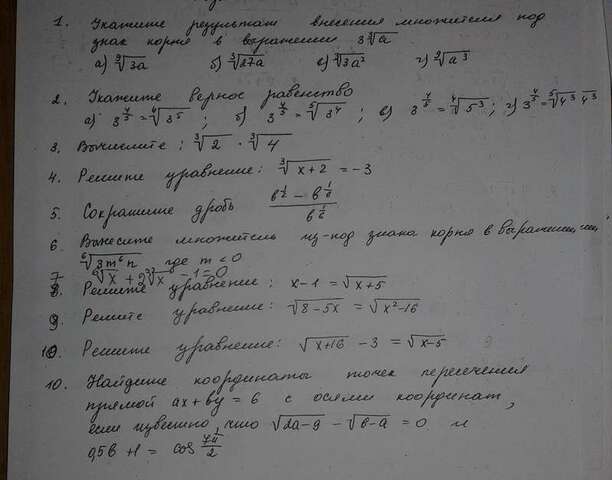 1. Укажите результат внесения множителя под
знак корня в выражении 3∛a
а) ∛3a б) ∛27a в) ∛3a² г) ∛a³
2. Укажите верное равенство
а) 3^(4/5) = ∜3⁵ ; б) 3^(4/5) = ⁵√3⁴ ; в) 3^(4/5) = ∜5³ ; г) 3^(4/5) = ⁵√4³
3. Вычислите : ∛2 · ∛4
4. Решите уравнение: ∛x+2 = -3
5. Сократите дробь
6. Вынесите множитель из-под знака корня в выражении
⁶√3m⁶n где m < 0
8. Решите уравнение: x-1 = √x+5
9. Решите уравнение: √8-5x = √x²-16
10. Решите уравнение: √x+16 - 3 = √x-5
10. Найдите координаты точек пересечения
прямой ax + by = 6 с осями координат,
если известно, что √2a-9 - √b-a = 0 и
0,5b + 1 = cos 7π/2